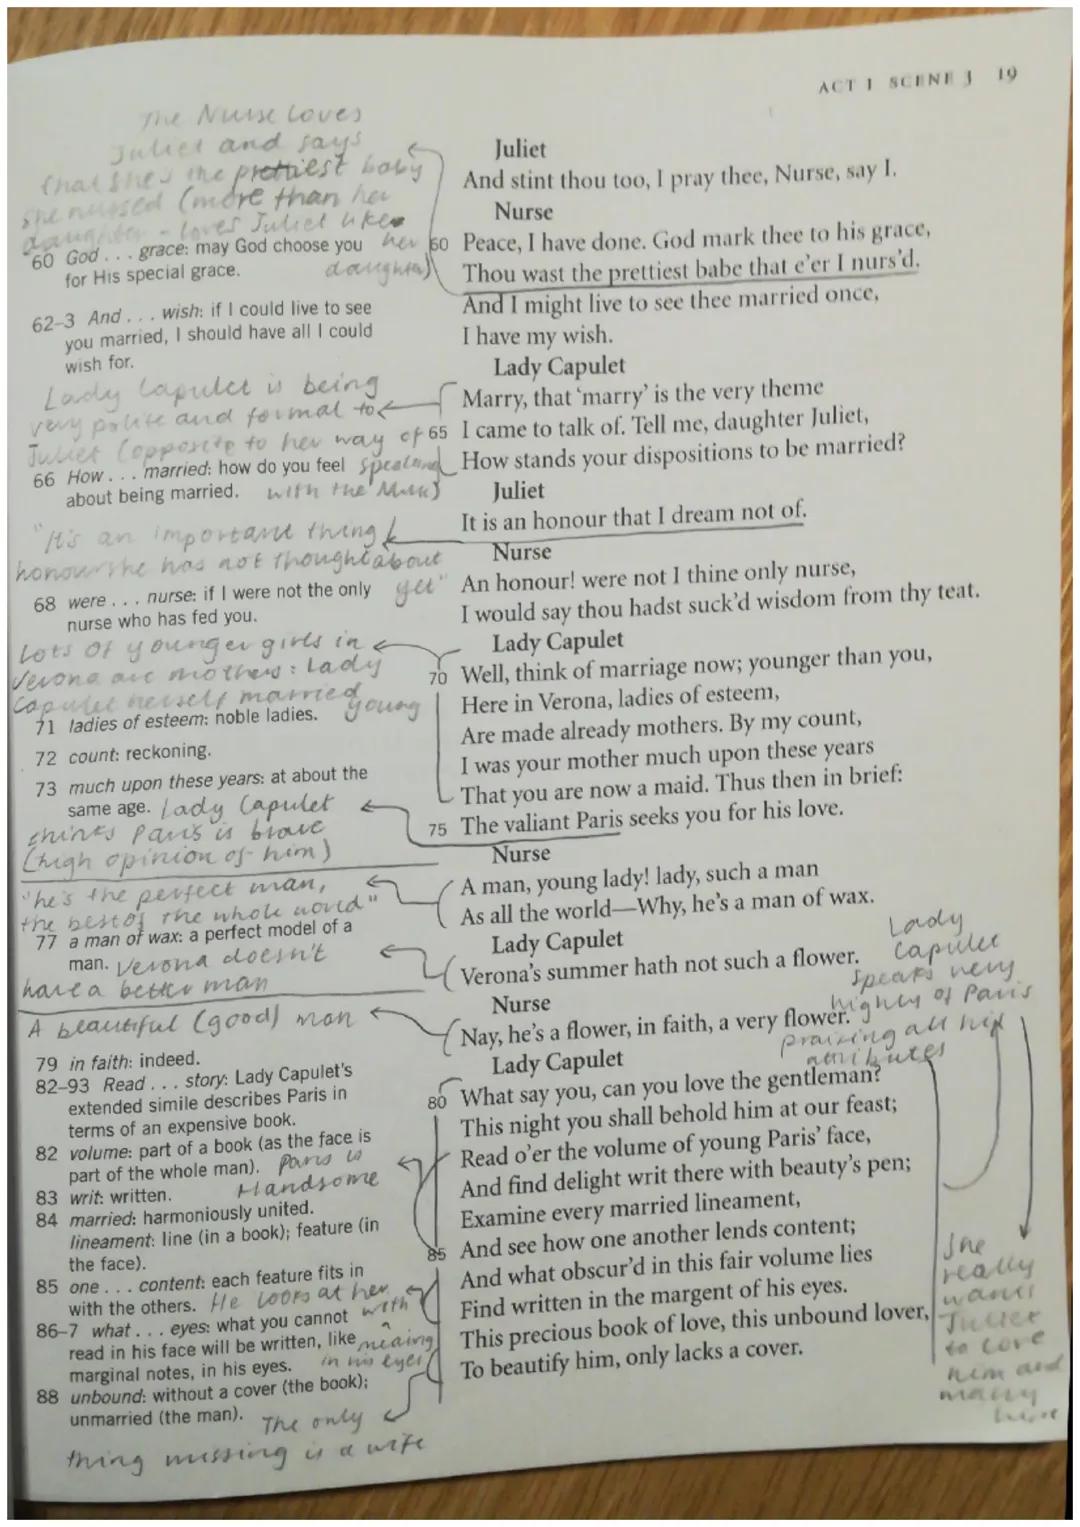 ACT 1 SCENE 3 19
The Nurse loves
Juliet and says
that she's the prettiest baby
she nursed (more than her
daughter - loves Juliet like
her
daughter)
60 God . . . grace: may God choose you
for His special grace.
62–3 And . . . wish: if I could live to see
you married, I should have all I could
wish for.
Lady Capulet is being
very polite and formal to
Juliet (opposite to her way of
speaking
with the Nurse)
66 How . . . married: how do you feel
about being married.
"It's an important thing
honour she has not thought about
yet"
68 were . . . nurse: if I were not the only
nurse who has fed you.
Lots of younger girls in
Verona are mothers: Lady
Capulet herself married
young
71 ladies of esteem: noble ladies.
72 count: reckoning.
73 much upon these years: at about the
same age.
Lady Capulet
thinks Paris is brave
(high opinion of him)
"he's the perfect man,
the best of the whole world"
77 a man of wax: a perfect model of a
man.
Verona doesn't
have a better man
A beautiful (good) man
79 in faith: indeed.
82–93 Read . . . story: Lady Capulet's
extended simile describes Paris in
terms of an expensive book.
82 volume: part of a book (as the face is
part of the whole man).
Paris is
Handsome
83 writ: written.
84 married: harmoniously united.
lineament: line (in a book); feature (in
the face).
85 one . . . content: each feature fits in
with the others.
He looks at her
with
meaning
in his eyes
86–7 what . . . eyes: what you cannot
read in his face will be written, like
marginal notes, in his eyes.
88 unbound: without a cover (the book);
unmarried (the man).
The only
thing missing is a wife
Juliet
And stint thou too, I pray thee, Nurse, say I.
Nurse
60 Peace, I have done. God mark thee to his grace,
Thou wast the prettiest babe that e'er I nurs'd.
And I might live to see thee married once,
I have my wish.
Lady Capulet
Marry, that 'marry' is the very theme
65 I came to talk of. Tell me, daughter Juliet,
How stands your dispositions to be married?
Juliet
It is an honour that I dream not of.
Nurse
An honour! were not I thine only nurse,
I would say thou hadst suck'd wisdom from thy teat.
Lady Capulet
70 Well, think of marriage now; younger than you,
Here in Verona, ladies of esteem,
Are made already mothers. By my count,
I was your mother much upon these years
That you are now a maid. Thus then in brief:
75 The valiant Paris seeks you for his love.
Nurse
A man, young lady! lady, such a man
As all the world—Why, he's a man of wax.
Lady Capulet
Verona's summer hath not such a flower.
Nurse
Nay, he's a flower, in faith, a very flower.
Lady Capulet
80 What say you, can you love the gentleman?
This night you shall behold him at our feast;
Read o'er the volume of young Paris' face,
And find delight writ there with beauty's pen;
Examine every married lineament,
85 And see how one another lends content;
And what obscur'd in this fair volume lies
Find written in the margent of his eyes.
This precious book of love, this unbound lover,
To beautify him, only lacks a cover.
Lady
Capulet
speaks very
highly of Paris
praising all his
attributes
She
really
wants
Juliet
to love
him and
marry
him